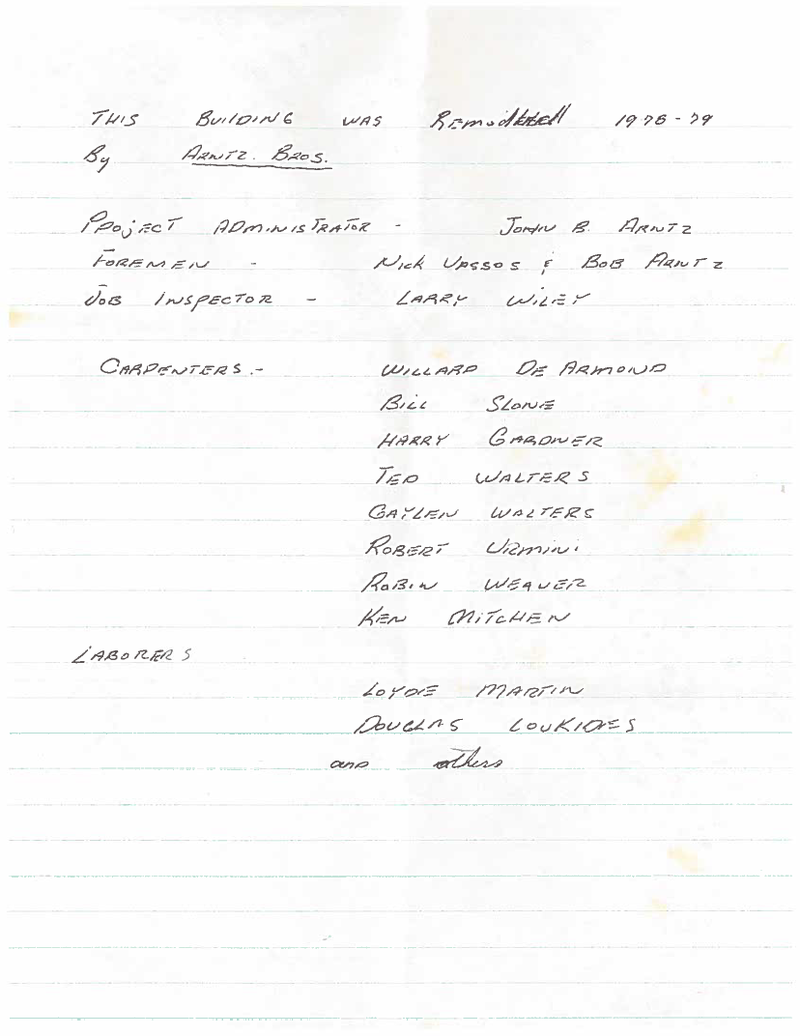 THIS BUILDING WAS Remodeled 1978-79
By ARNTZ. BROS.
PROJECT ADMINISTRATOR - JOHN B. ARNTZ
FOREMEN - Nick VASSOS & BOB ARNTZ
JOB INSPECTOR - LARRY WILEY
CARPENTERS.- WILLARD DE ARMOND
BILL SLONE
HARRY GARDNER
TED WALTERS
GAYLEN WALTERS
ROBERT URMINI
ROBIN WEAVER
KEN MITCHEN
LABORERS
LOYDE MARTIN
DOUGLAS LOUKIDES
and others